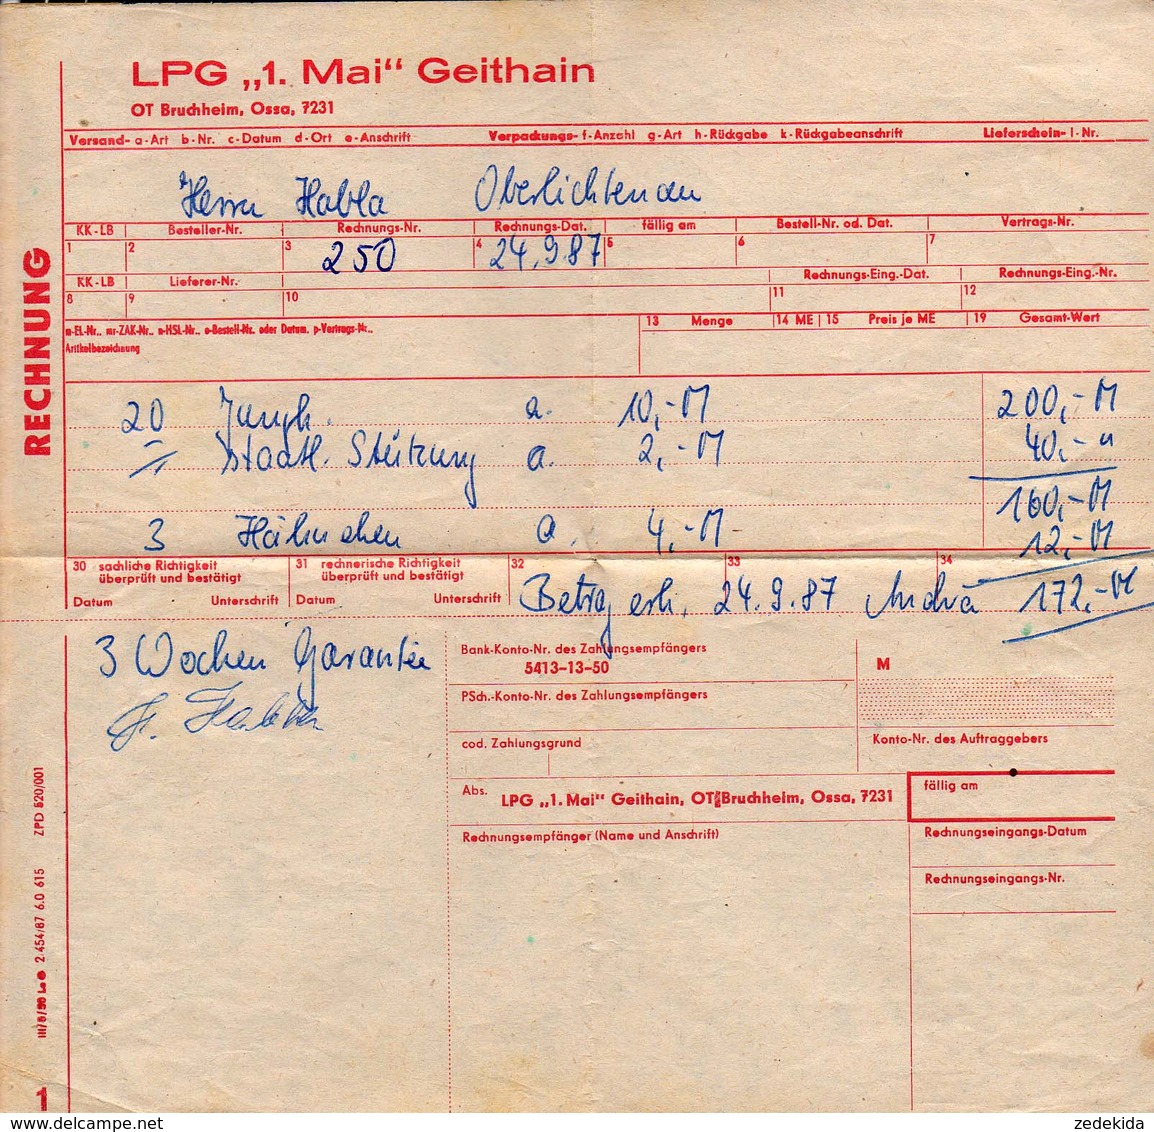 LPG „1. Mai“ Geithain
OT Bruchheim, Ossa, 7231
Versand- a-Art b-Nr. c-Datum d-Ort e-Anschrift Verpackungs- f-Anzahl g-Art h-Rückgabe k-Rückgabeanschrift Lieferschein- l-Nr.
Herrn Habla Oberlichtenau
KK-LB Besteller-Nr. Rechnungs-Nr. Rechnungs-Dat. fällig am Bestell-Nr. od. Dat. Vertrags-Nr.
1 2 3 250 4 24.9.87 5 6 7
KK-LB Lieferer-Nr. Rechnungs-Eing.-Dat. Rechnungs-Eing.-Nr.
8 9 10 11 12
RECHNUNG
m-EL-Nr., mr-ZAK-Nr., n-HSL-Nr., o-Bestell-Nr. oder Datum, p-Vertrags-Nr.,
Artikelbezeichnung
13 Menge 14 ME 15 Preis je ME 19 Gesamt-Wert
20 Jungh. a. 10,-M 200,-M
staatl. Stützung a. 2,-M 40,-"
160,-M
3 Hähnchen a. 4,-M 12,-M
30 sachliche Richtigkeit
überprüft und bestätigt
Datum Unterschrift
31 rechnerische Richtigkeit
überprüft und bestätigt
Datum Unterschrift
32 33 34
Betrag erh. 24.9.87 172,-M
3 Wochen Garantie
Bank-Konto-Nr. des Zahlungsempfängers
5413-13-50
M
PSch.-Konto-Nr. des Zahlungsempfängers
cod. Zahlungsgrund
Konto-Nr. des Auftraggebers
Abs. LPG „1. Mai“ Geithain, OT Bruchheim, Ossa, 7231
fällig am
Rechnungsempfänger (Name und Anschrift)
Rechnungseingangs-Datum
Rechnungseingangs-Nr.
2.454/87 6.0 615 ZPD 520/001
1
delcampe.net
zedekida